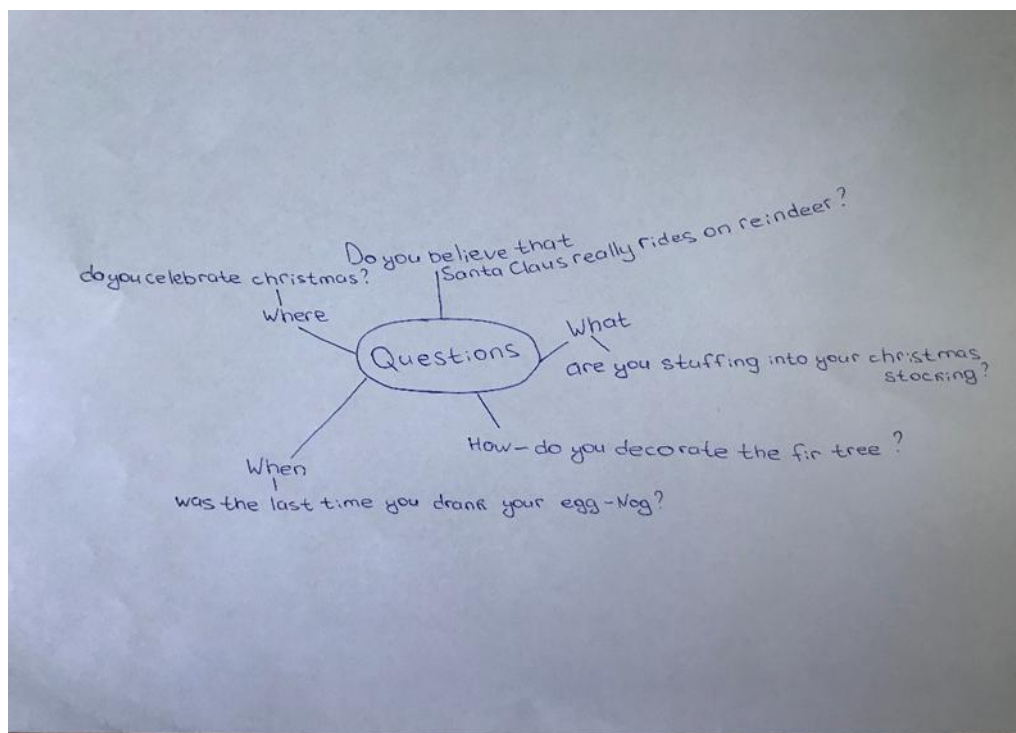 Do you believe that
Santa Claus really rides on reindeer?
do you celebrate christmas?
Where
What
are you stuffing into your christmas
stocking?
Questions
How - do you decorate the fir tree?
When
was the last time you drank your egg-Nog?